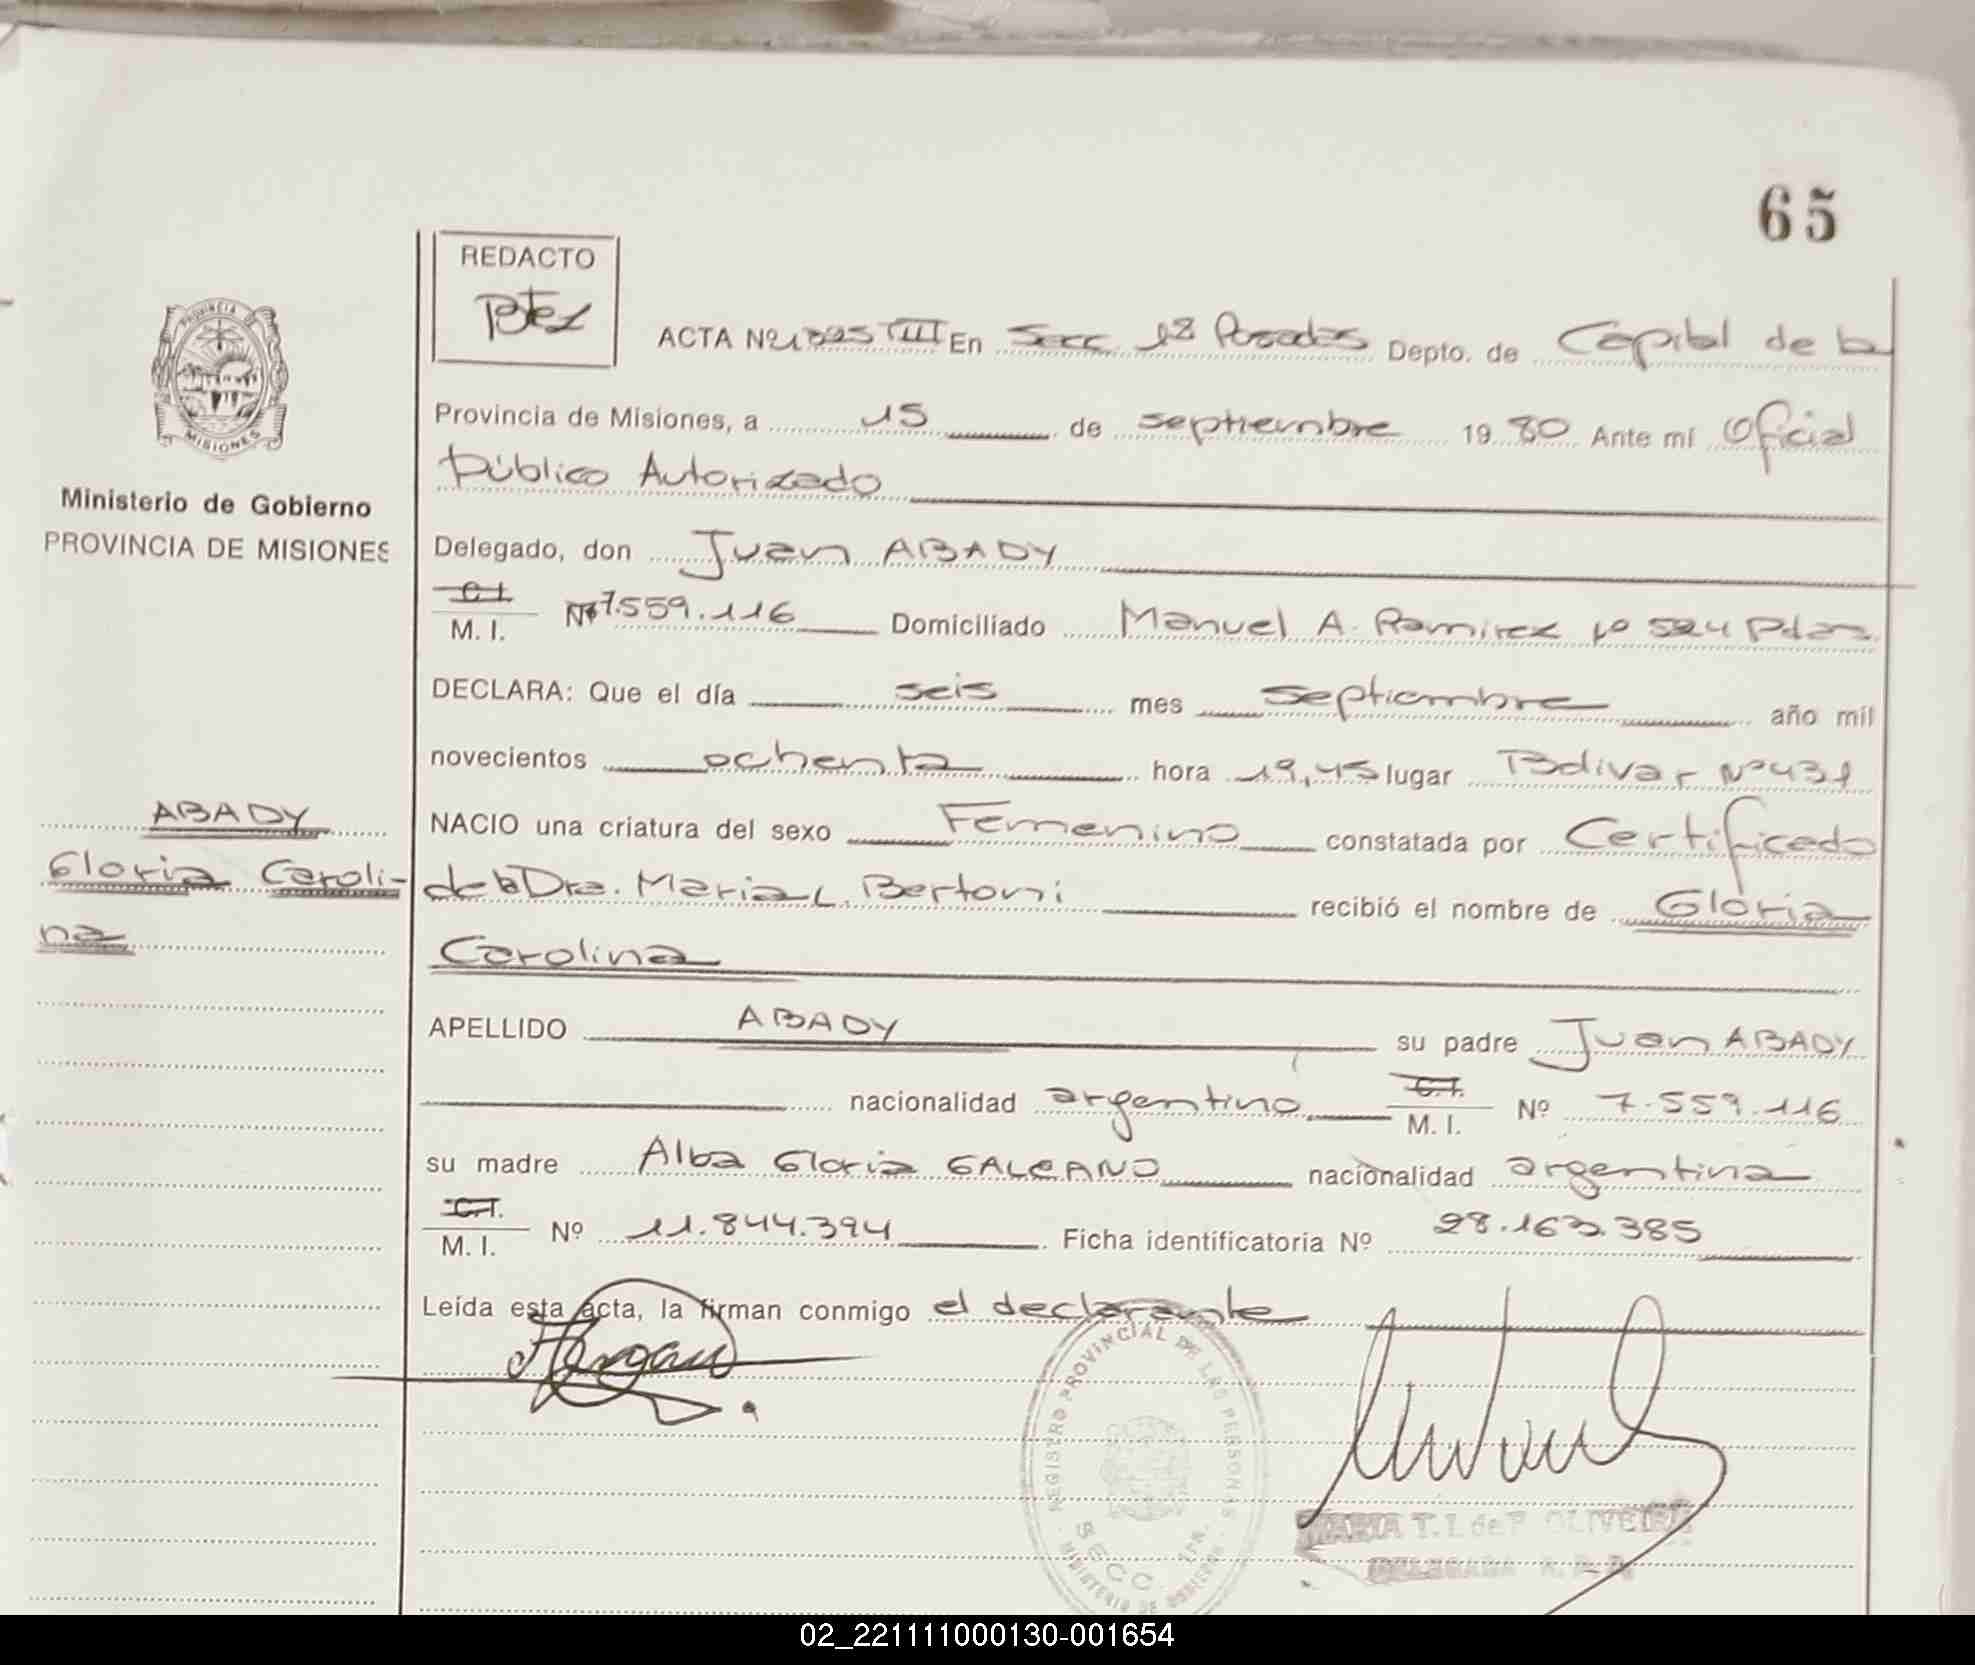 65
REDACTO
PROVINCIA DE
MISIONES
ACTA Nº 1325 TIII En Secc. 1ª Posadas Depto. de Capital de la
Provincia de Misiones, a 15 de septiembre 1980 Ante mí Oficial
Público Autorizado
Ministerio de Gobierno
PROVINCIA DE MISIONES
Delegado, don Juan ABADY
C.I.
M. I. Nº 7.559.116 Domiciliado Manuel A. Ramirez Nº 524 Pdas.
DECLARA: Que el día seis mes septiembre año mil
novecientos ochenta hora 19,45 lugar Bolivar Nº 431
ABADY
Gloria Caroli-
na
NACIO una criatura del sexo Femenino constatada por Certificado
de la Dra. Maria L. Bertoni recibió el nombre de Gloria
Carolina
APELLIDO ABADY su padre Juan ABADY
nacionalidad argentino C.I. M. I. Nº 7.559.116
su madre Alba Gloria GALEANO nacionalidad argentina
C.I.
M. I. Nº 11.844.394 Ficha identificatoria Nº 28.163.385
Leída esta acta, la firman conmigo el declarante
REGISTRO PROVINCIAL DE LAS PERSONAS
MINISTERIO DE GOBIERNO
SECC. 1ra.
MARIA T. I. de P. OLIVEIRA
DELEGADA R. P. P.
02_221111000130-001654